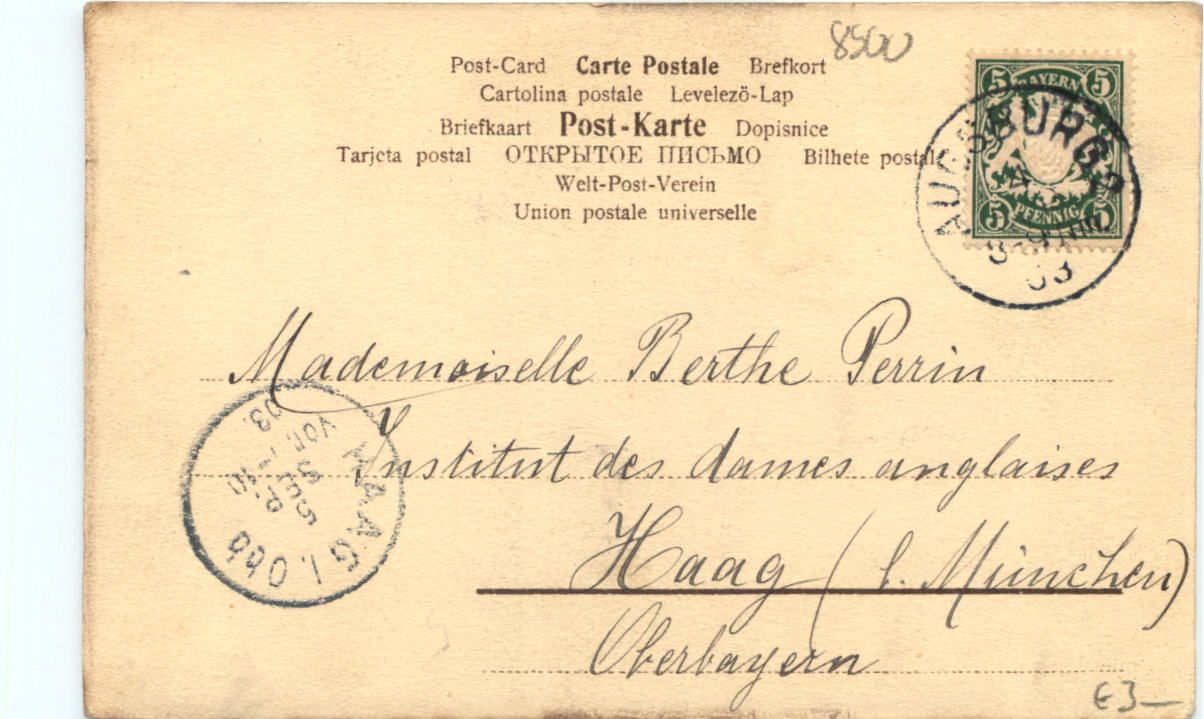 8500
Post-Card Carte Postale Brefkort
Cartolina postale Levelező-Lap
Briefkaart Post-Karte Dopisnice
Tarjeta postal ОТКРЫТОЕ ПИСЬМО Bilhete postal
Welt-Post-Verein
Union postale universelle
5 BAYERN 5
5 PFENNIG 5
AUGSBURG 2
8-9 Nm.
03
Mademoiselle Berthe Perrin
Institut des dames anglaises
Haag (b. München)
Oberbayern
HAAG i. Obb
5
VOR.
03.
€3—